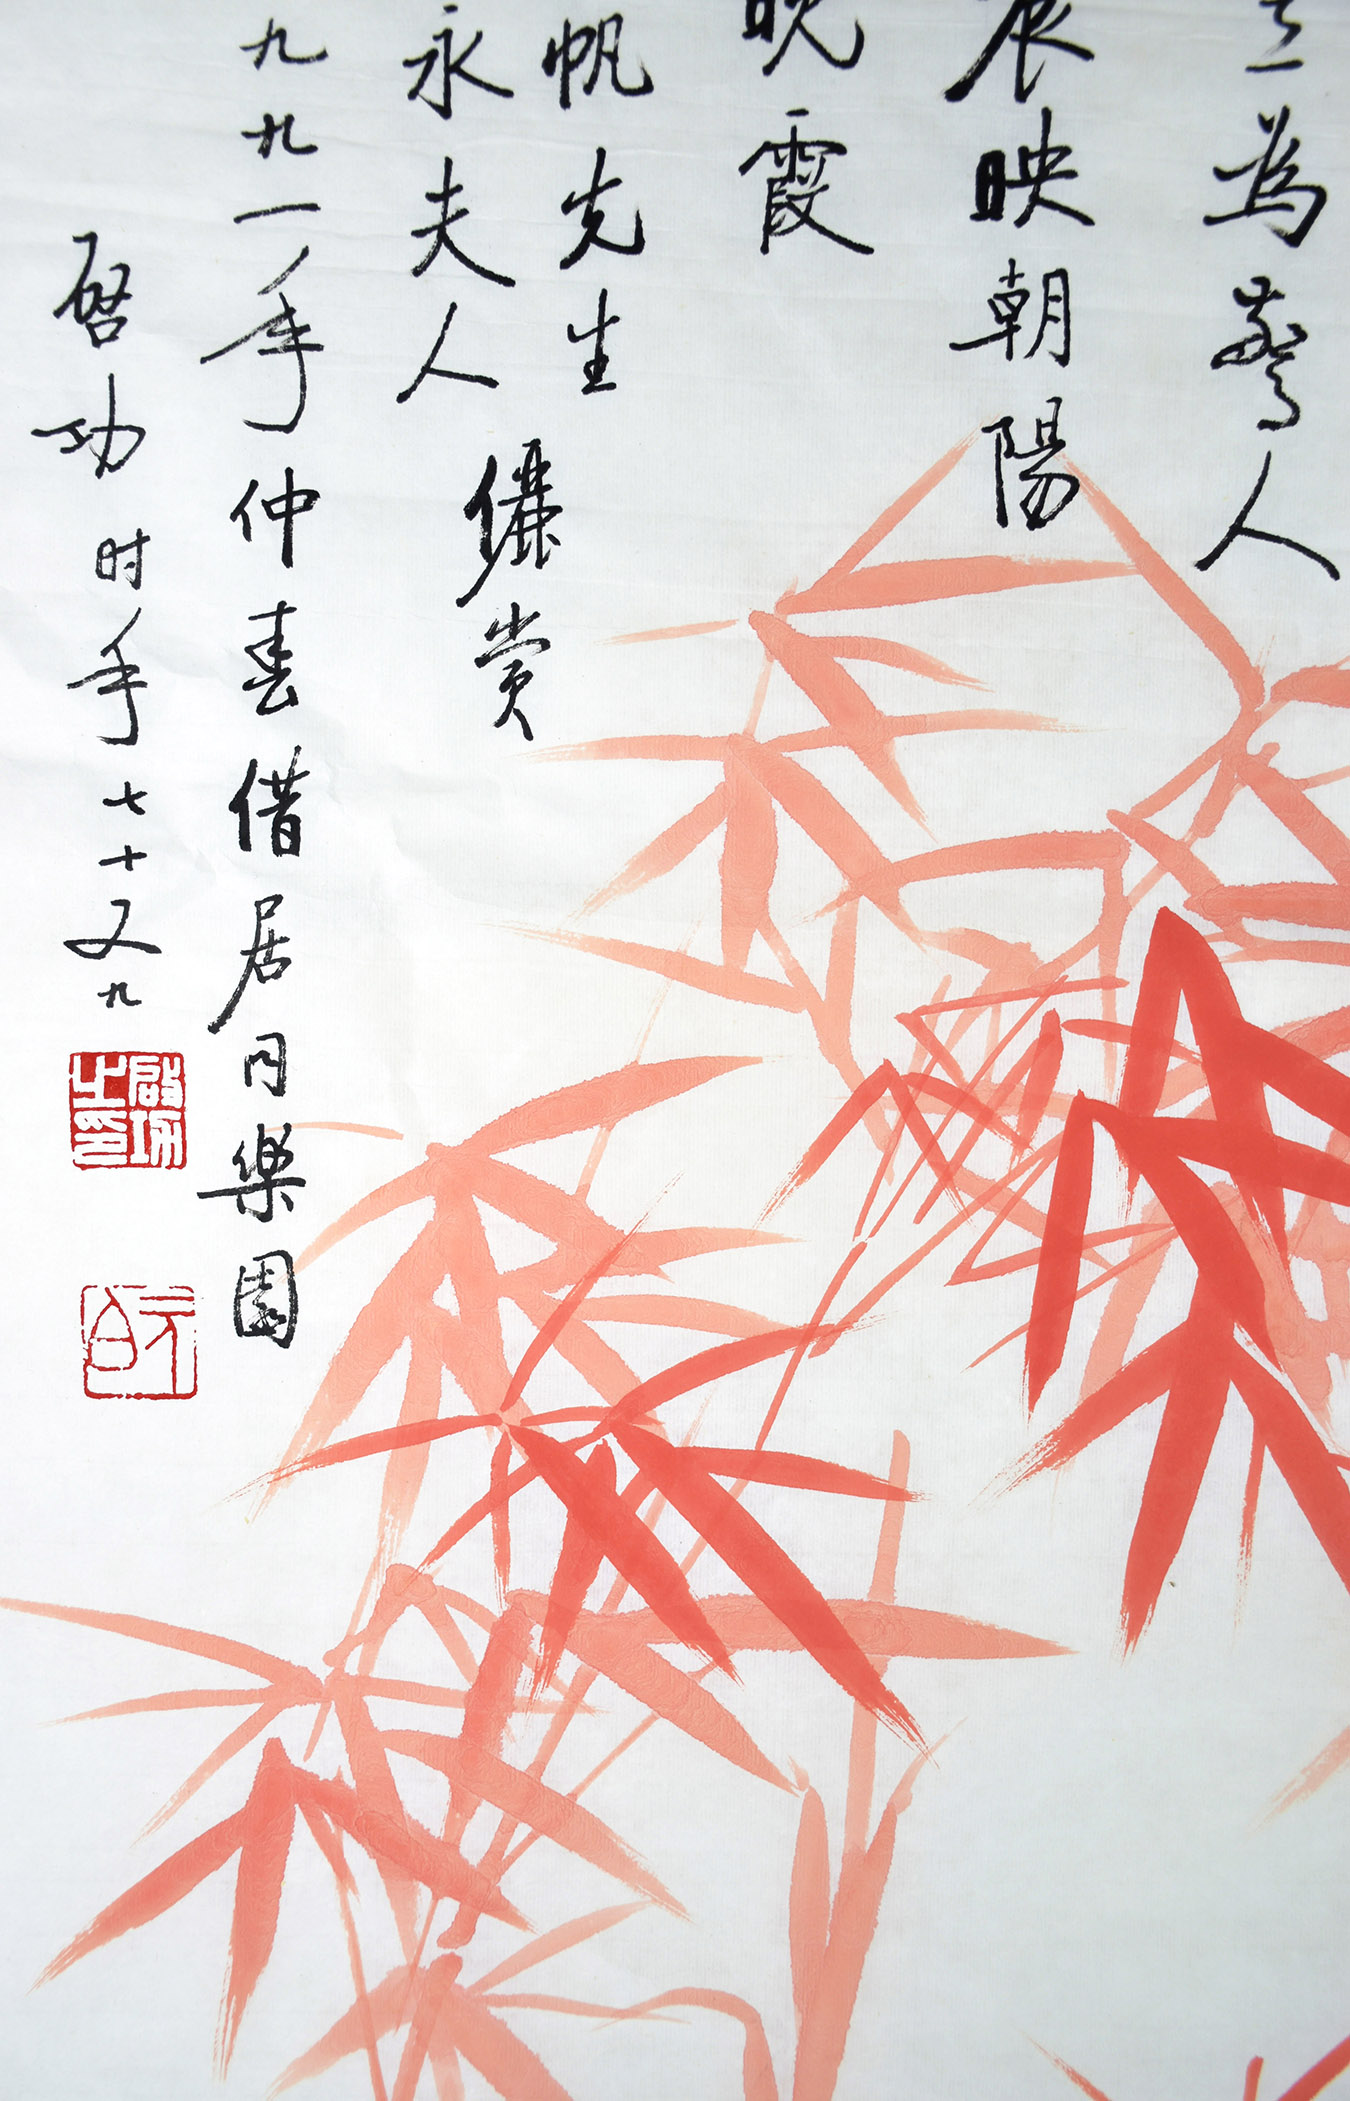 為驚人
映朝陽
晚霞
帆先生
永夫人
儷賞
九九一年仲春借居同樂園
啓功时年七十又九
啟功之印
元白